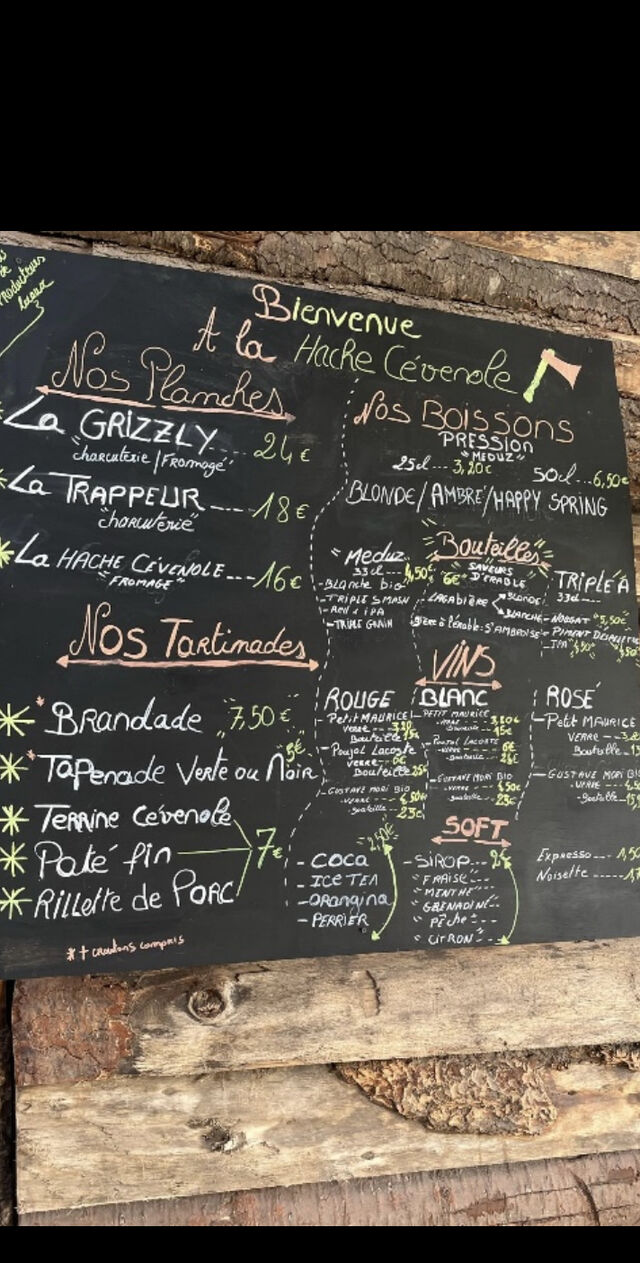 Producteurs
locaux
Bienvenue
A la Hache Cévenole
Nos Planches
La GRIZZLY.... 24€
"charcuterie/Fromage"
La TRAPPEUR ---18€
"charcuterie"
La HACHE CÉVENOLE---16€
"FROMAGE"
Nos Tartinades
* Brandade "7,50€"
* Tapenade Verte ou Noir
Terrine Cévenole
Paté fin 7€
Rillette de Porc
* + croutons compris
Nos BOISSONS
PRESSION
"MEDUZ"
25cl---3,20€ 50cl...6,50€
BLONDE/AMBRÉ/HAPPY SPRING
Bouteilles
"Meduz"
33cl---4,50€
-Blanche bio
-TRIPLE SMASH
-TRIPLE GRAIN
6€ "SAVEURS
D'ÉRABLE"
BLONDE
BLANCHE
TRIPLE A
33cl----
-NOUGAT "5,50€"
-IPA
VINS
ROUGE
-Petit MAURICE
Verre
Bouteille
-Poujol Lacoste
verre--6€
Bouteille
-GUSTAVE MORI BIO
-VERRE
-bouteille..23€
BLANC
-PETIT MAURICE
15€
-POUJOL LACOSTE
-GUSTAVE MORI BIO
-bouteille 23€
ROSÉ
-Petit MAURICE
VERRE
Bouteille
-GUSTAVE MORI BIO
-VERRE
-bouteille
SOFT
"2,50€"
-COCA
-ICE TEA
-Orangina
-PERRIER
-SIROP--- 2€
"FRAISE"
"MENTHE"
"GRENADINE"
"Pêche"
"CITRON"
Expresso---1,50
Noisette----